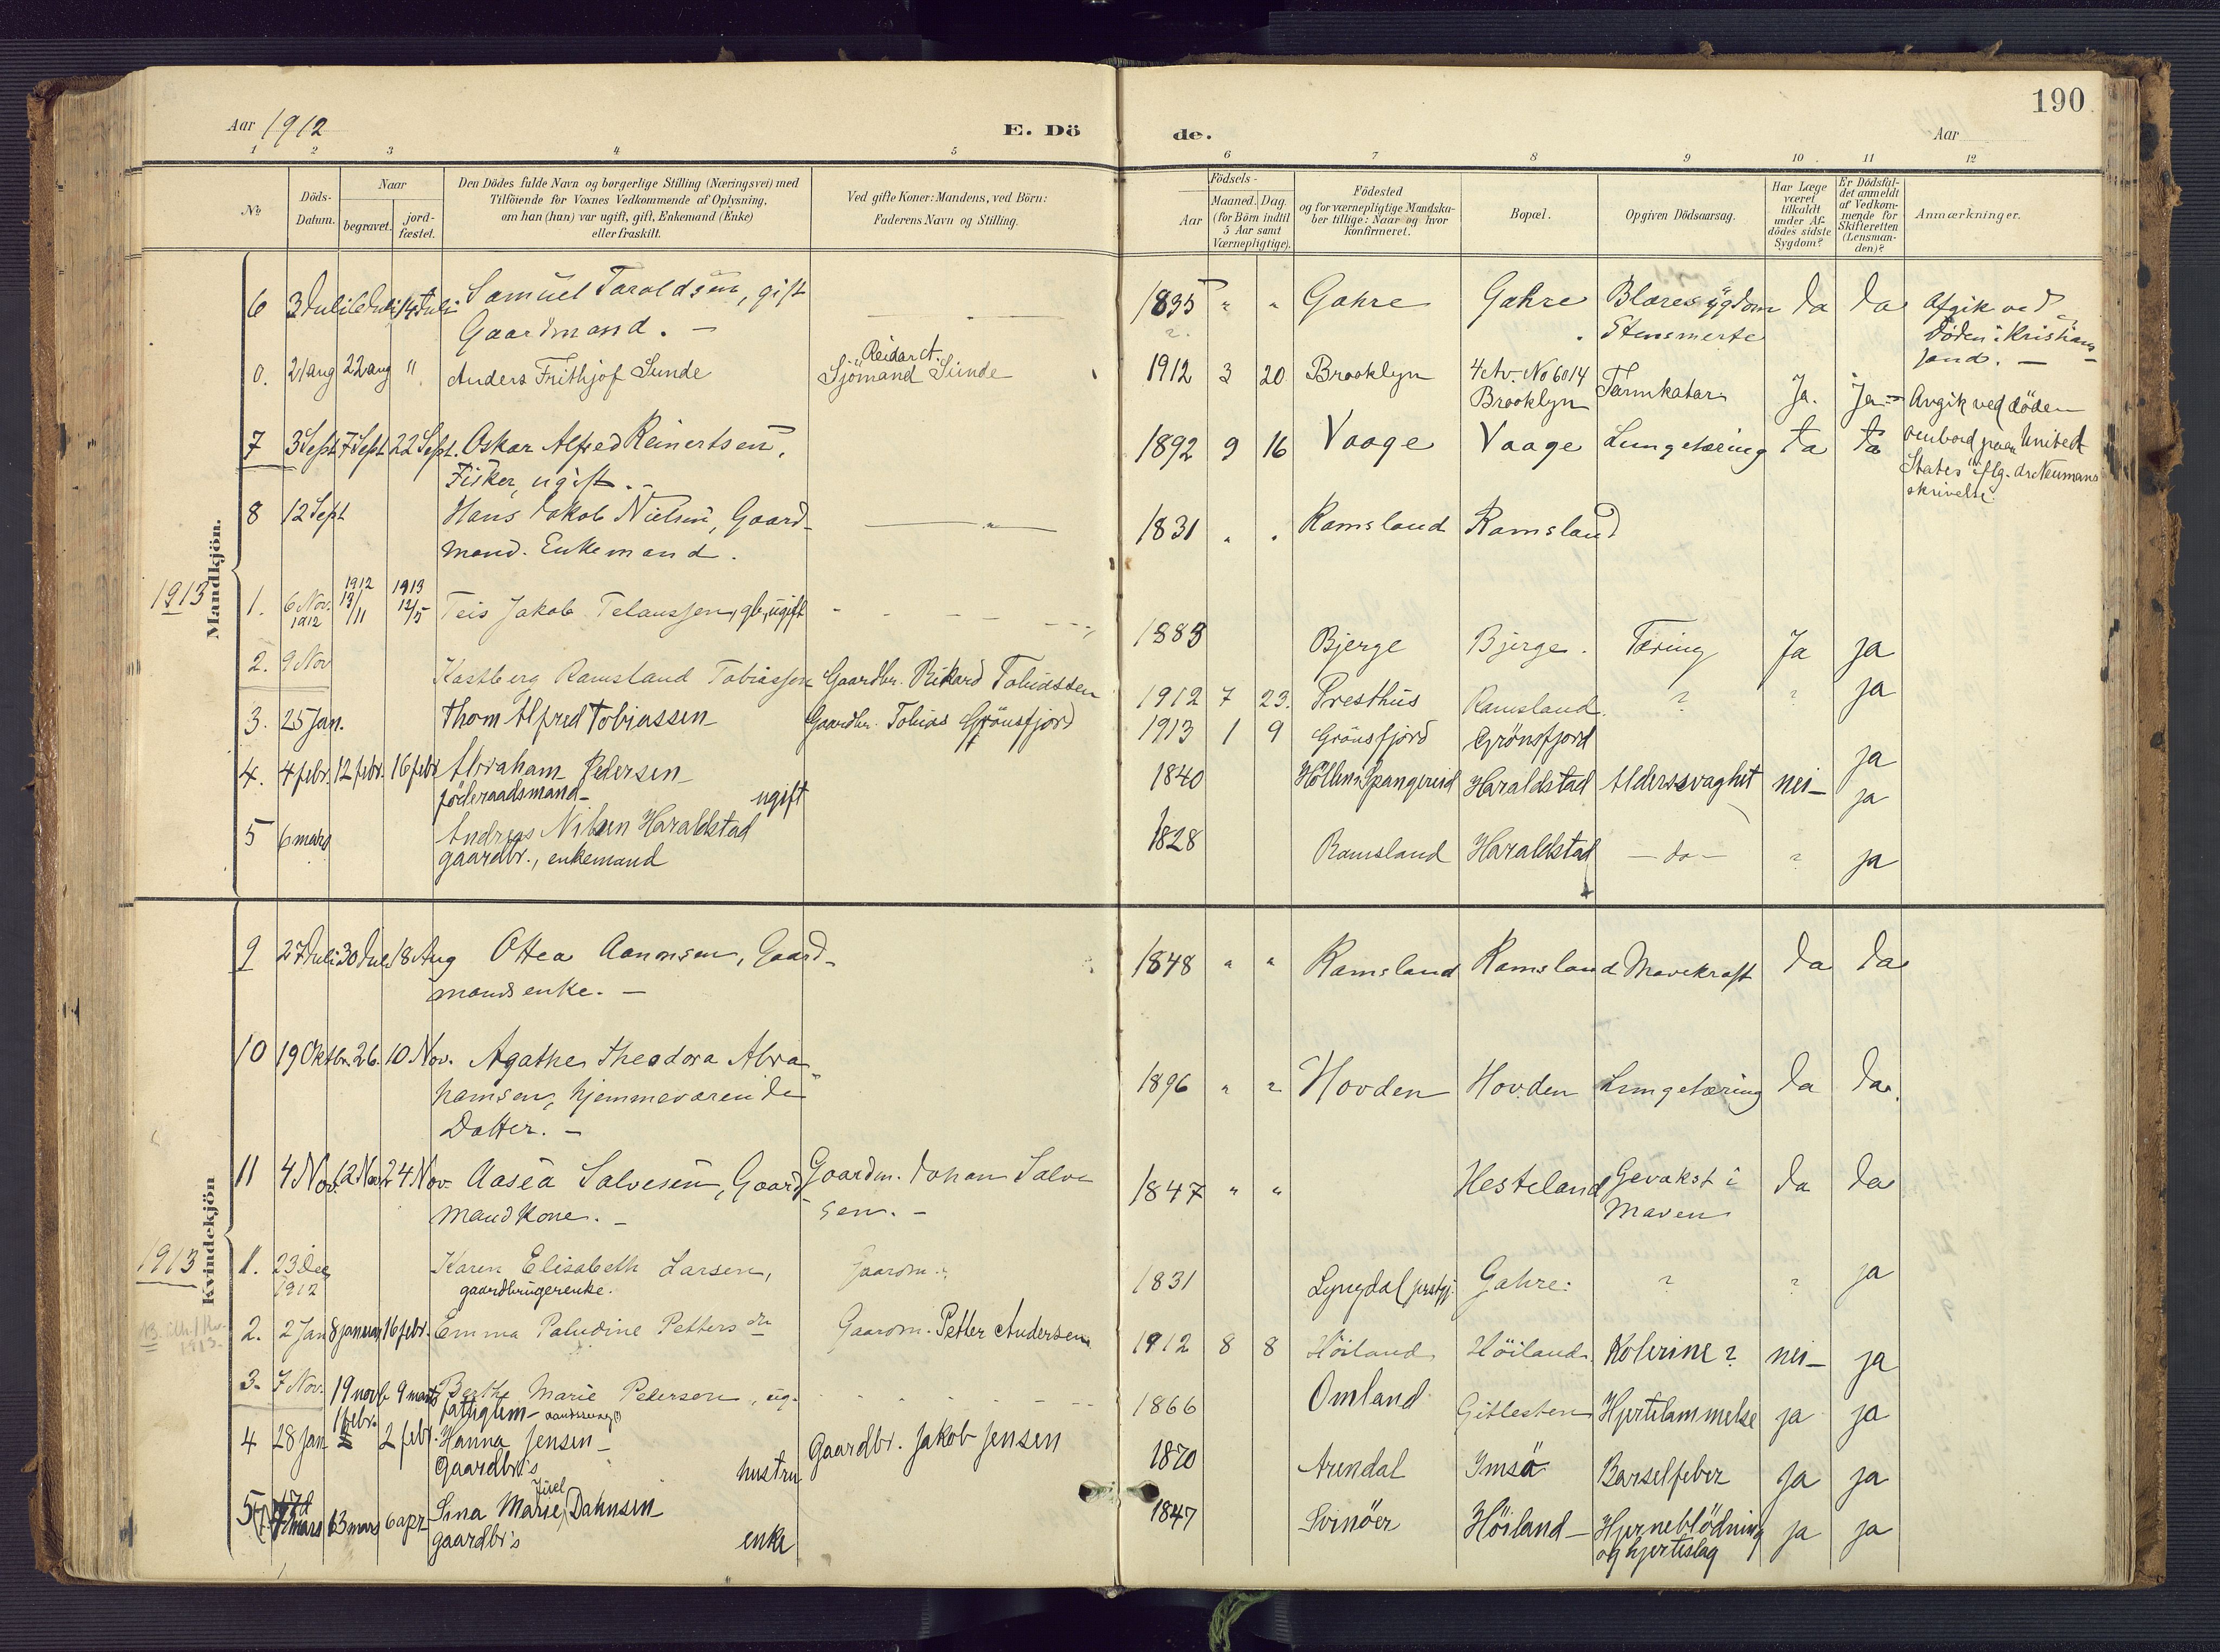 190
Aar 1912
E. Dö
de.
Aar
1 2 3 4 5 6 7 8 9 10 11 12
No
Döds-
Datum.
Naar
begravet.
jord-
fæstet.
Den Dödes fulde Navn og borgerlige Stilling (Næringsvei) med
Tilföiende for Voxnes Vedkommende af Oplysning,
om han (hun) var ugift, gift, Enkemand (Enke)
eller fraskilt.
Ved gifte Koner: Mandens, ved Börn:
Faderens Navn og Stilling.
Födsels-
Aar
Maaned. Dag.
(for Börn indtil
5 Aar samt
Værnepligtige).
Födested
og for værnepligtige Mandska-
ber tillige: Naar og hvor
konfirmeret.
Bopæl.
Opgiven Dödsaarsag.
Har Læge
været
tilkaldt
under Af-
dödes sidste
Sygdom?
Er Dödsfal-
det anmeldt
af Vedkom-
mende for
Skifteretten
(Lensman-
den)?
Anmærkninger.
Mandkjön.
6 3 Juli 14 Juli Samuel Taroldsen, gift 1835 " " Gahre Gahre Blæresygdom Ja Ja Afgik ved
Gaardmand. — Stensmerte Döden i Kristian-
sand. —
0. 21 aug 22 aug " Anders Frithjof Sunde Reidar A.
Sjömand Sunde 1912 3 20 Brooklyn 4 Av. No 6014
Brooklyn Tarmkatar Ja. Ja Avgik ved döden
ombord paa United
States iflg. dr Neumans
skrivelse.
7 3 Sept 7 Sept 22 Sept. Oskar Alfred Reinertsen, 1892 9 16 Vaage Vaage Lungetæring Ja Ja
Fisker, ugift. —
8 12 Sept Hans Jakob Nielsen, Gaard- — " — 1831 " " Ramsland Ramsland
mand. Enkemand.
1913
1. 6 Nov. 1912 1912 13/11 1913 12/5 Teis Jakob Telaussen, gb, ugift 1883 Bjerge Bjerge. Tæring Ja ja
2. 9 Nov Kastberg Ramsland Tobiassen Gaardbr. Rikard Tobiassen 1912 7 23. Presthus Ramsland. ? ? ja
3. 25 Jan. Thom Alfred Tobiassen Gaardbr. Tobias Grönsfjord 1913 1 9 Grönsfjord Grönsfjord ja
4. 4 febr. 12 febr. 16 febr Abraham Pedersen 1840 Höllen Spangereid Haraldstad Alderssvaghet nei — ja
föderaadsmand — ugift
5 6 mars Andreas Nilsen Haraldstad 1828 Ramsland Haraldstad — do — ? ja
gaardbr., enkemand
Kvindekjön
9 27 Juli 30 Juli 18 Aug Ottea Aanonsen, Gaard- 1848 " " Ramsland Ramsland Mavekræft Ja Ja
mands enke. —
10 19 Oktbr. 26. 10 Nov. Agathe Theodora Abra- 1896 " " Hovden Hovden Lungetæring Ja Ja.
hamsen, hjemmeværende
Datter. —
11 4 Nov. 12 Nov 24 Nov Aasea Salvesen, Gaard Gaardm. Johan Salve 1847 " " Hesteland Gevækst i Ja Ja
mand Kone. — sen. — Maven
1913
1. 23 Dec 1912 Karen Elisabeth Larsen, Gaardm. 1831 Lyngdal prstgj. Gahre: ? ? ja
gaardbrugerenke.
2. 2 Jan 8 januar 16 febr. Emma Paludine Petters dtr Gaardm. Petter Andersen 1912 8 8 Höiland Höiland. Kolerine? nei — ja
3. 7 Nov. 19 novb 9 marts Berthe Marie Pedersen, ug. 1866 Omland Gitlesten Hjertelammelse ja ja
fattiglem — aandssvag (?)
4 28 Jan 1 febr. 2 febr. Hanna Jensen — Gaardbr. Jakob Jensen 1870 Arendal Imsö Barselfeber Ja ja
Gaardbr's hustru
5 mars 13 mars 6 apr. Sina Marie Juel Dahnsen 1847 Svinöer Höiland — Hjerneblödning ja ja
gaardbr's enke og hjerteslag